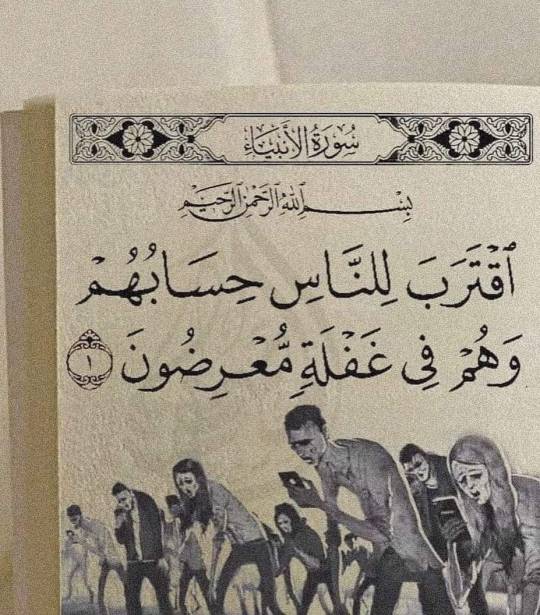 سُورَةُ الأَنْبِيَاءِ
بِسْمِ اللَّهِ الرَّحْمَٰنِ الرَّحِيمِ
ٱقْتَرَبَ لِلنَّاسِ حِسَابُهُمْ
وَهُمْ فِى غَفْلَةٍ مُّعْرِضُونَ ١